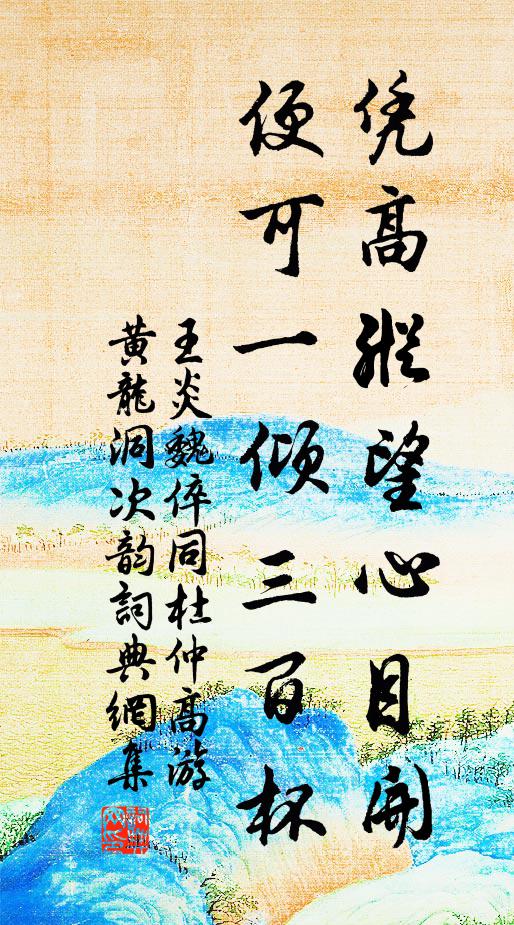 凭高縱望心目開
便可一傾三百杯
王炎魏倅同杜仲高游
黄龍洞次韵詞典網集